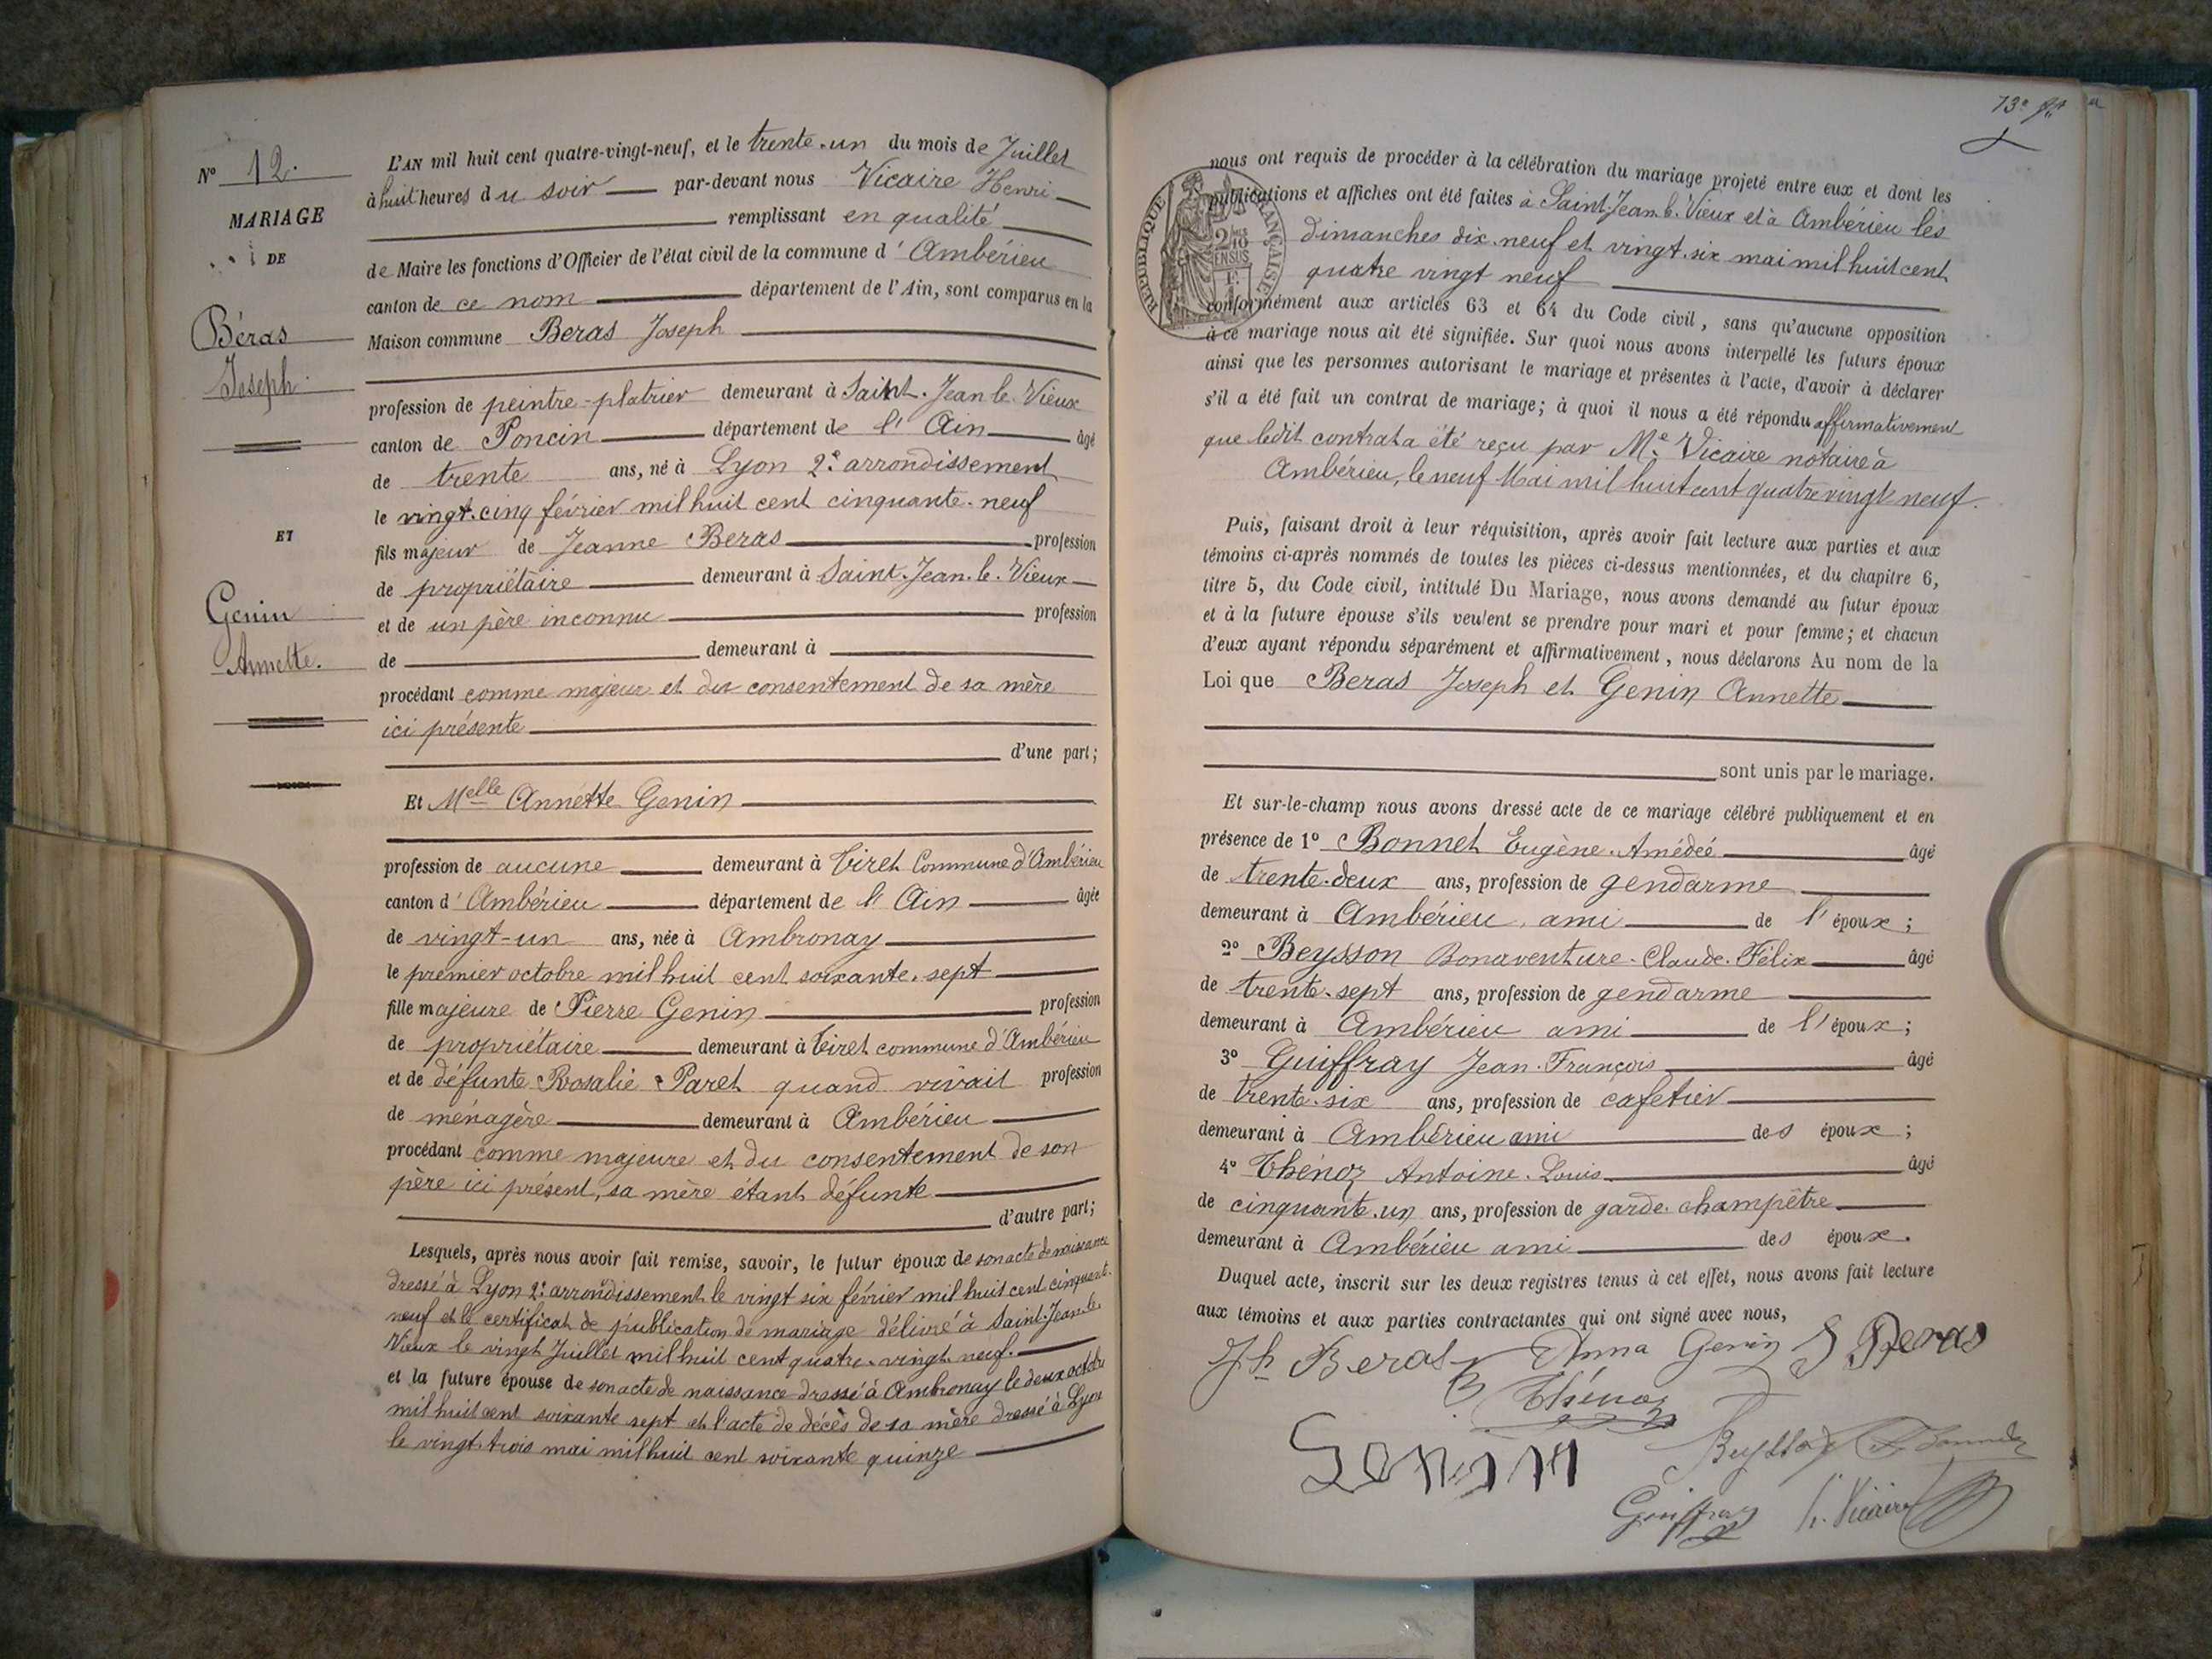 Nº 12.
MARIAGE
DE
Béras
Joseph
ET
Genin
Annette.
L'AN mil huit cent quatre-vingt-neuf, et le trente-un du mois de Juillet
à huit heures du soir par-devant nous Vicaire Henri
remplissant en qualité
de Maire les fonctions d'Officier de l'état civil de la commune d'Ambérieu
canton de ce nom département de l'Ain, sont comparus en la
Maison commune Beras Joseph
profession de peintre-platrier demeurant à Saint-Jean-le-Vieux
canton de Poncin département de l'Ain âgé
de trente ans, né à Lyon 2e arrondissement
le vingt-cinq février mil huit cent cinquante-neuf
fils majeur de Jeanne Beras profession
de propriétaire demeurant à Saint-Jean-le-Vieux
et de un père inconnu profession
de demeurant à
procédant comme majeur et du consentement de sa mère
ici présente
d'une part;
Et Melle Annette Genin
profession de aucune demeurant à Tiret Commune d'Ambérieu
canton d'Ambérieu département de l'Ain âgée
de vingt-un ans, née à Ambronay
le premier octobre mil huit cent soixante-sept
fille majeure de Pierre Genin profession
de propriétaire demeurant à Tiret commune d'Ambérieu
et de défunte Rosalie Paret quand vivait profession
de ménagère demeurant à Ambérieu
procédant comme majeure et du consentement de son
père ici présent, sa mère étant défunte
d'autre part;
Lesquels, après nous avoir fait remise, savoir, le futur époux de son acte de naissance
dressé à Lyon 2e arrondissement le vingt six février mil huit cent cinquant-
neuf et le certificat de publication de mariage délivré à Saint-Jean-le-
Vieux le vingt Juillet mil huit cent quatre-vingt-neuf.
et la future épouse de son acte de naissance dressé à Ambronay le deux octobre
mil huit cent soixante sept et l'acte de décès de sa mère dressé à Lyon
le vingt trois mai mil huit cent soixante quinze
13e
RÉPUBLIQUE FRANÇAISE
2/10 EN SUS
nous ont requis de procéder à la célébration du mariage projeté entre eux et dont les
publications et affiches ont été faites à Saint-Jean-le-Vieux et à Ambérieu les
dimanches dix-neuf et vingt-six mai mil huit cent
quatre vingt neuf
conformément aux articles 63 et 64 du Code civil, sans qu'aucune opposition
à ce mariage nous ait été signifiée. Sur quoi nous avons interpellé les futurs époux
ainsi que les personnes autorisant le mariage et présentes à l'acte, d'avoir à déclarer
s'il a été fait un contrat de mariage; à quoi il nous a été répondu affirmativement
que ledit contrat a été reçu par Me Vicaire notaire à
Ambérieu, le neuf Mai mil huit cent quatre vingt neuf.
Puis, faisant droit à leur réquisition, après avoir fait lecture aux parties et aux
témoins ci-après nommés de toutes les pièces ci-dessus mentionnées, et du chapitre 6,
titre 5, du Code civil, intitulé Du Mariage, nous avons demandé au futur époux
et à la future épouse s'ils veulent se prendre pour mari et pour femme; et chacun
d'eux ayant répondu séparément et affirmativement, nous déclarons Au nom de la
Loi que Beras Joseph et Genin Annette
sont unis par le mariage.
Et sur-le-champ nous avons dressé acte de ce mariage célébré publiquement et en
présence de 1º Bonnet Eugène-Amédée âgé
de trente-deux ans, profession de gendarme
demeurant à Ambérieu, ami de l'époux;
2º Beysson Bonaventure-Claude-Félix âgé
de trente-sept ans, profession de gendarme
demeurant à Ambérieu ami de l'époux;
3º Guiffray Jean-François âgé
de trente-six ans, profession de cafetier
demeurant à Ambérieu ami des époux;
4º Thénoz Antoine-Louis âgé
de cinquante-un ans, profession de garde-champêtre
demeurant à Ambérieu ami des époux.
Duquel acte, inscrit sur les deux registres tenus à cet effet, nous avons fait lecture
aux témoins et aux parties contractantes qui ont signé avec nous,
Jh Beras Anna Genin J Beras
Thénoz
Genin Beysson
Guiffray h. Vicaire